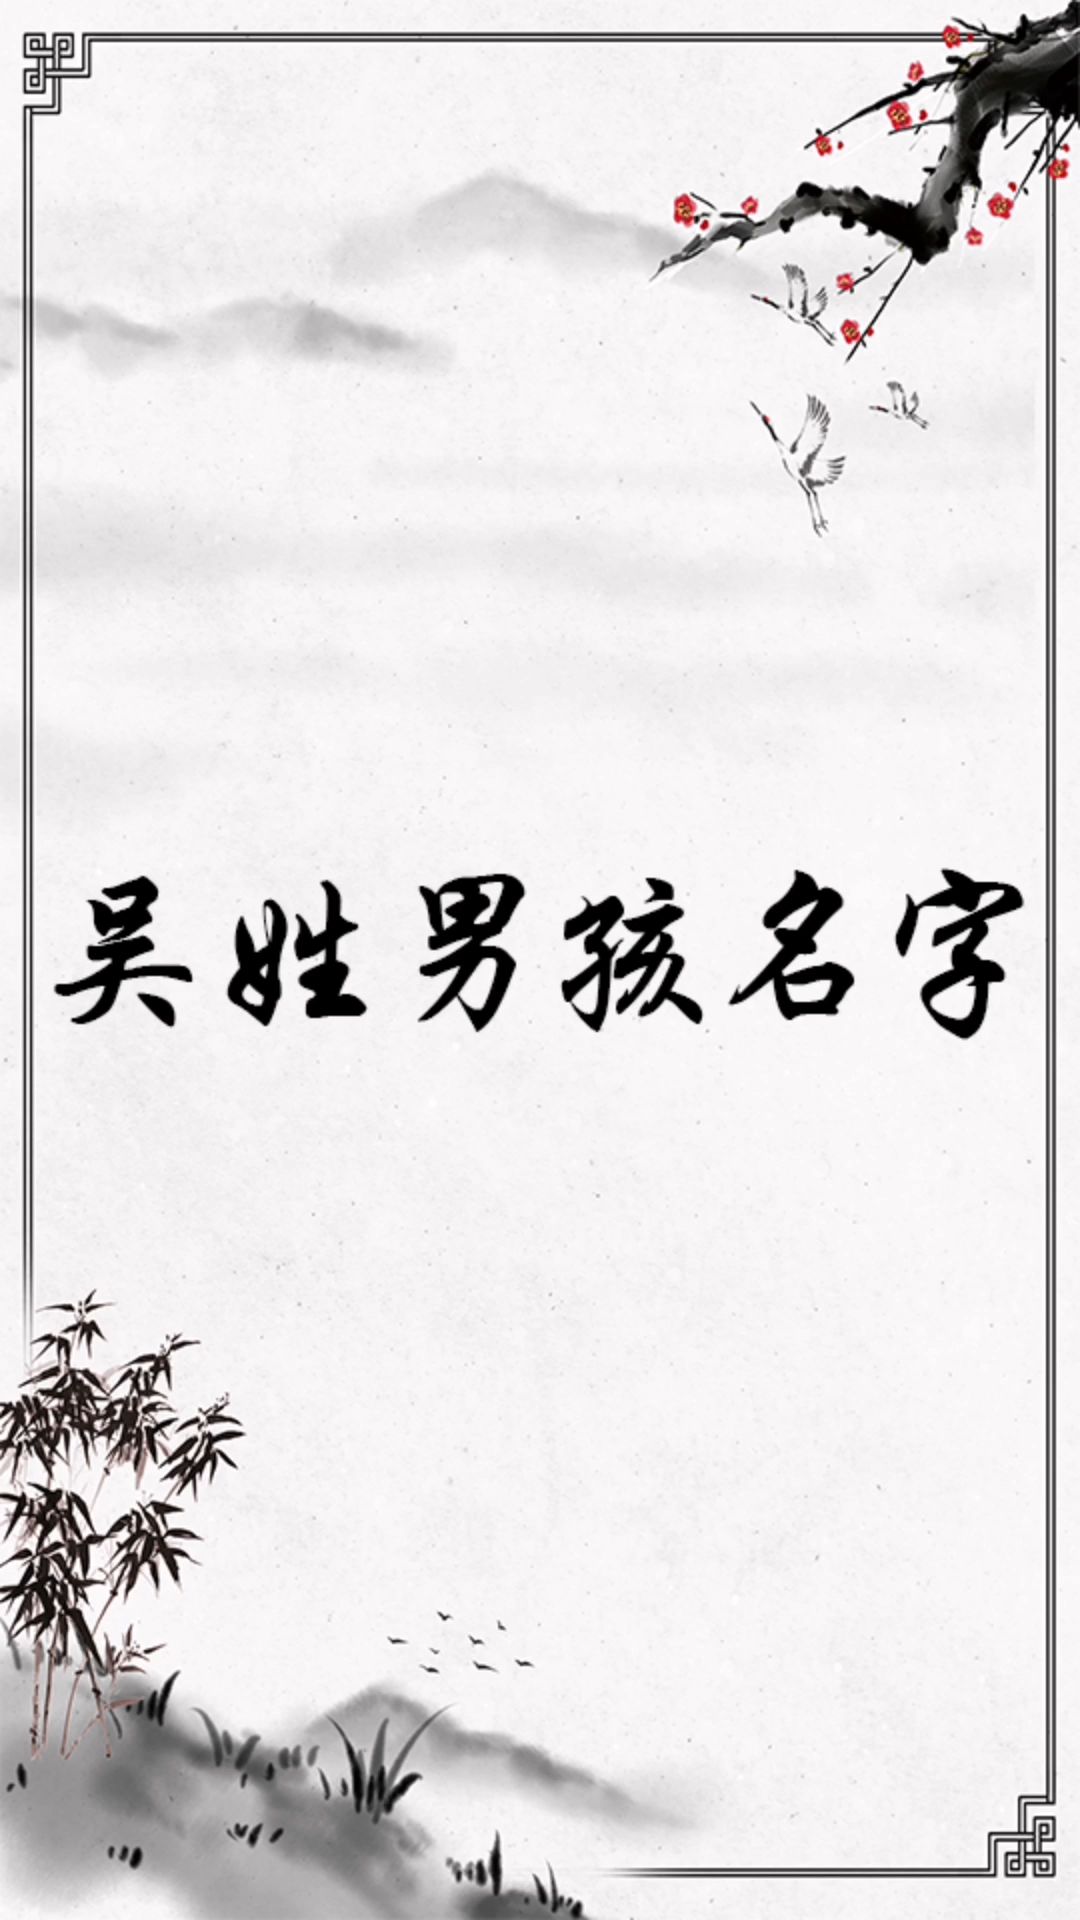 吴姓男孩名字